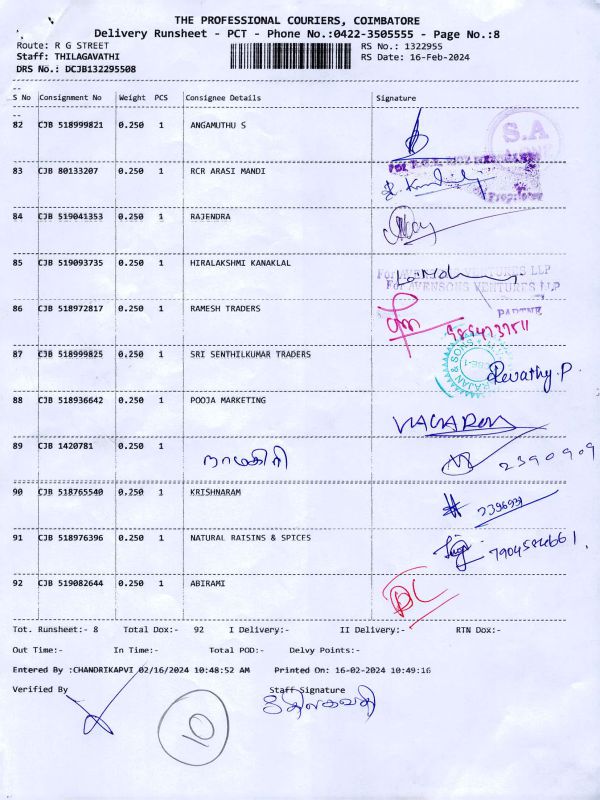 THE PROFESSIONAL COURIERS, COIMBATORE
Delivery Runsheet - PCT - Phone No.:0422-3505555 - Page No.:8
Route: R G STREET RS No.: 1322955
Staff: THILAGAVATHI RS Date: 16-Feb-2024
DRS No.: DCJB132295508
S No Consignment No Weight PCS Consignee Details Signature
82 CJB 518999821 0.250 1 ANGAMUTHU S
S.A
83 CJB 80133207 0.250 1 RCR ARASI MANDI
Proprietor
84 CJB 519041353 0.250 1 RAJENDRA
85 CJB 519093735 0.250 1 HIRALAKSHMI KANAKLAL
For AVENSONS VENTURES LLP
For AVENSONS VENTURES LLP
86 CJB 518972817 0.250 1 RAMESH TRADERS
PARTNE
87 CJB 518999825 0.250 1 SRI SENTHILKUMAR TRADERS
RAJAN & SONS
Revathy.P
88 CJB 518936642 0.250 1 POOJA MARKETING
89 CJB 1420781 0.250 1 நாமகிரி 2390909
90 CJB 518765540 0.250 1 KRISHNARAM
91 CJB 518976396 0.250 1 NATURAL RAISINS & SPICES
92 CJB 519082644 0.250 1 ABIRAMI
Tot. Runsheet:- 8 Total Dox:- 92 I Delivery:- II Delivery:- RTN Dox:-
Out Time:- In Time:- Total POD:- Delvy Points:-
Entered By :CHANDRIKAPVI 02/16/2024 10:48:52 AM Printed On: 16-02-2024 10:49:16
Verified By Staff Signature
10